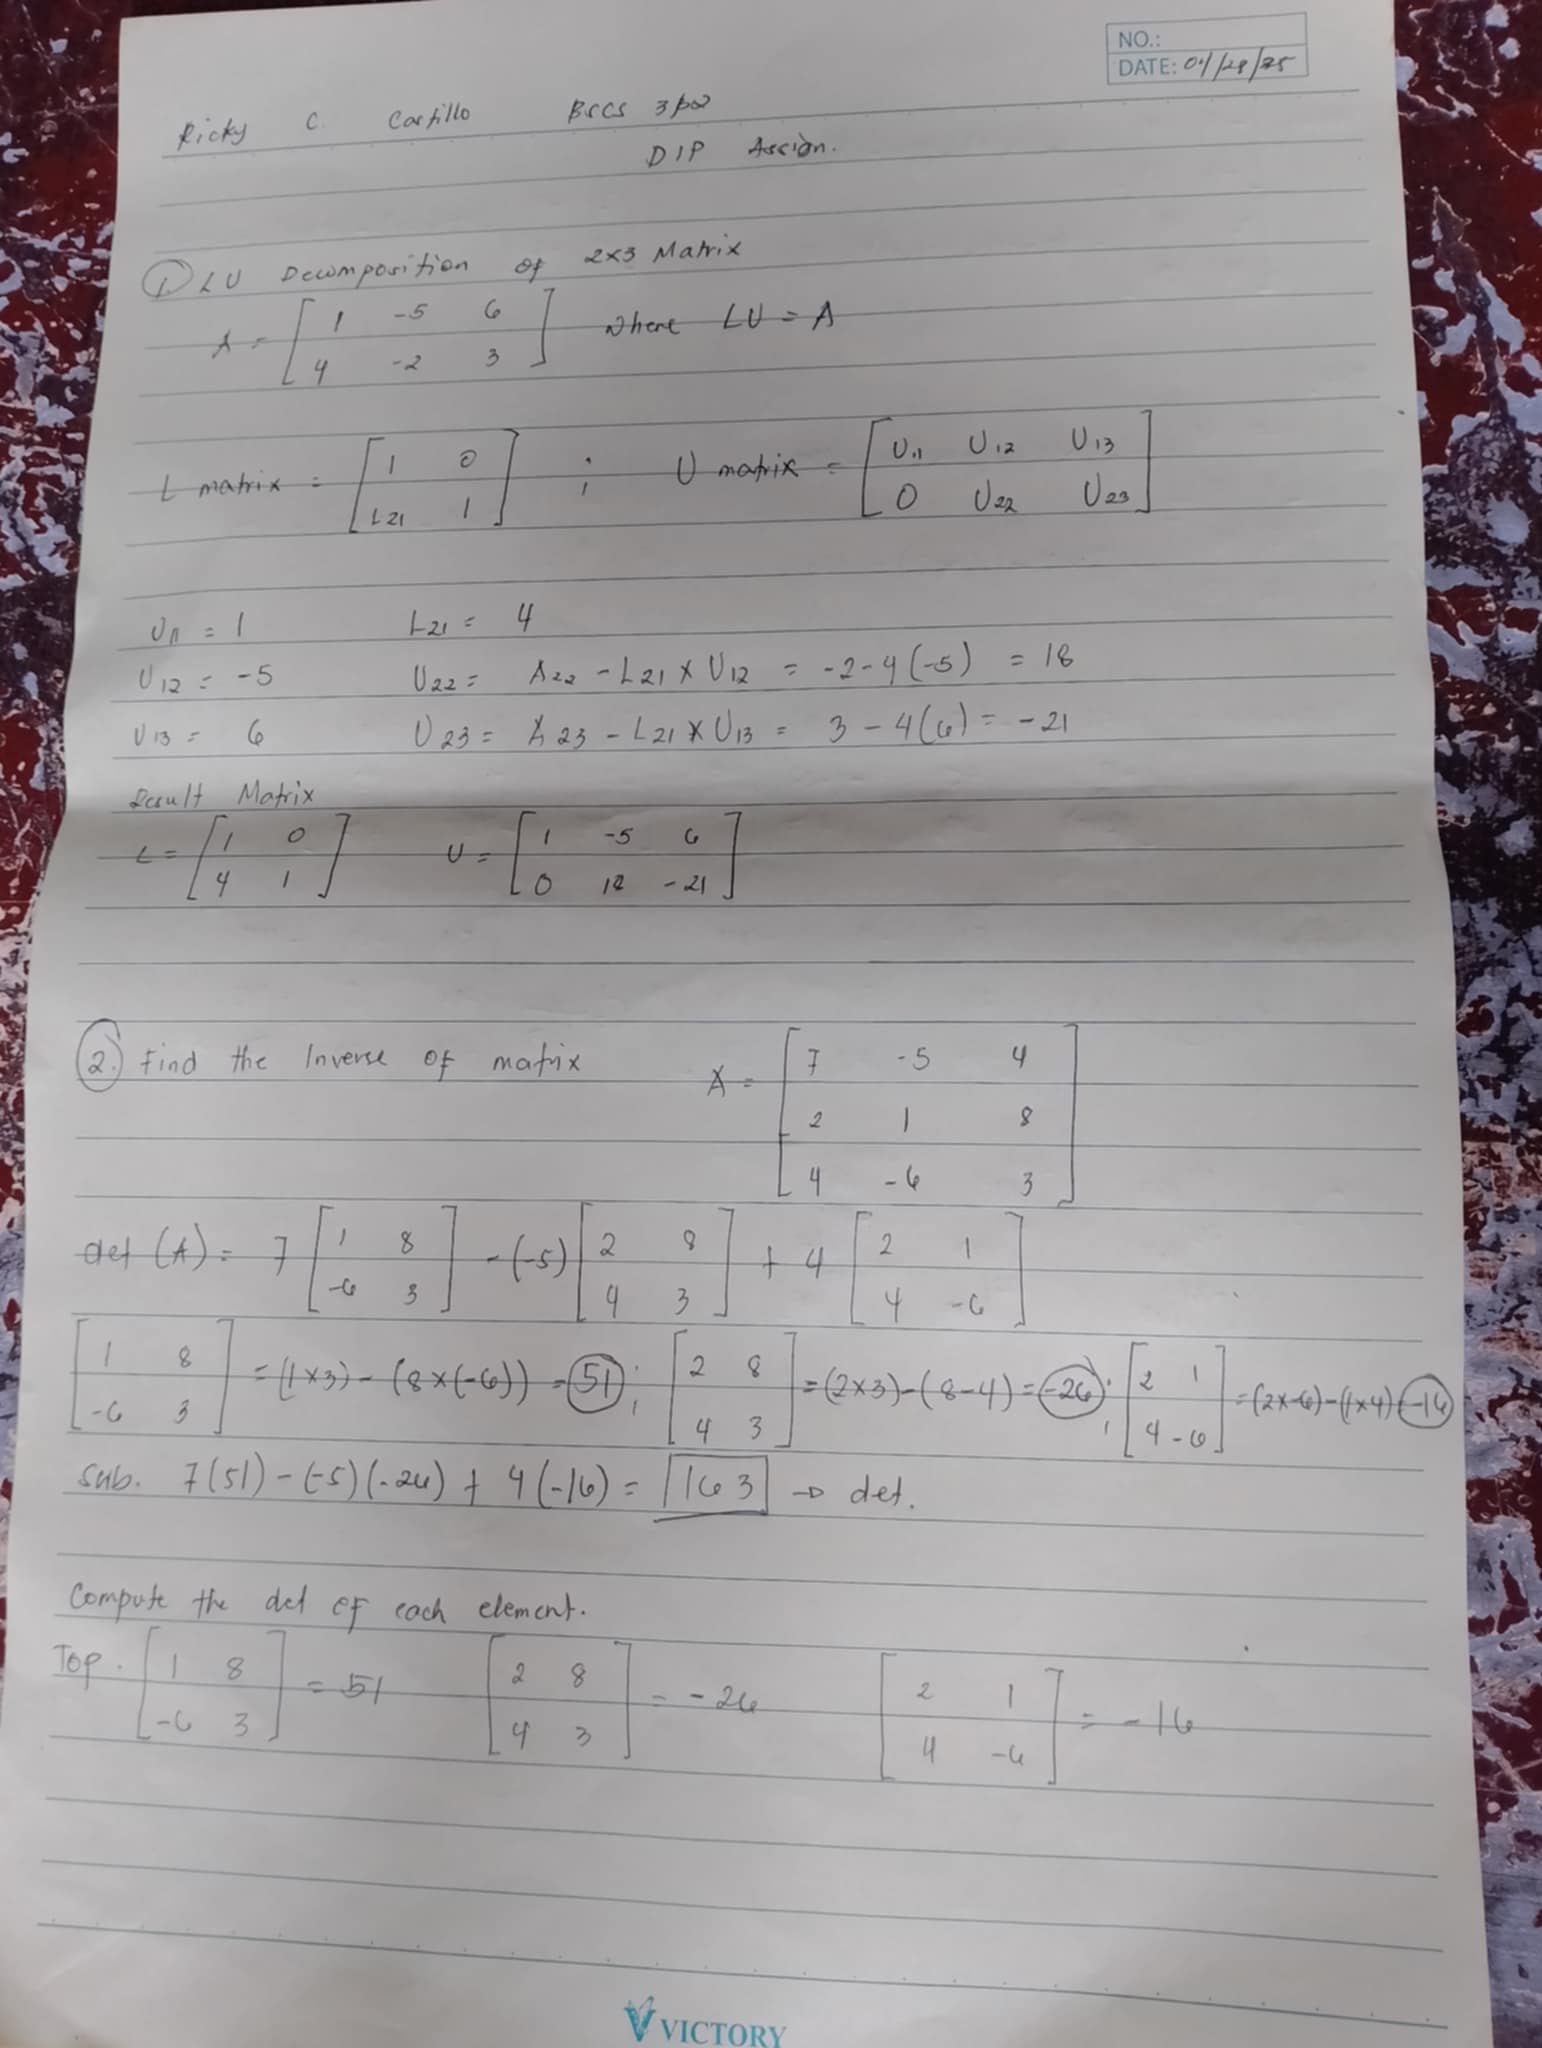 NO.:
DATE: 04/28/25
Ricky C. Castillo BSCS 3
DIP Assign.
1. LU Decomposition of 2x3 Matrix
A = [ 1 -5 6 ] where LU = A
[ 4 -2 3 ]
L matrix = [ 1 0 ] ; U matrix = [ U11 U12 U13 ]
[ L21 1 ] [ 0 U22 U23 ]
U11 = 1 L21 = 4
U12 = -5 U22 = A22 - L21 x U12 = -2-4(-5) = 18
U13 = 6 U23 = A23 - L21 x U13 = 3 - 4(6) = -21
Result Matrix
L = [ 1 0 ] U = [ 1 -5 6 ]
[ 4 1 ] [ 0 18 -21 ]
2. Find the Inverse of matrix A = [ 7 -5 4 ]
[ 2 1 8 ]
[ 4 -6 3 ]
det (A) = 7 [ 1 8 ] - (-5) [ 2 8 ] + 4 [ 2 1 ]
[ -6 3 ] [ 4 3 ] [ 4 -6 ]
[ 1 8 ] = (1x3) - (8x(-6)) = 51 ; [ 2 8 ] = (2x3)-(8-4) = -26 ; [ 2 1 ] = (2x-6)-(1x4) = -16
[ -6 3 ] [ 4 3 ] [ 4 -6 ]
Sub. 7(51) - (-5)(-26) + 4(-16) = 163 → det.
Compute the det of each element.
Top. [ 1 8 ] = 51 [ 2 8 ] = -26 [ 2 1 ] = -16
[ -6 3 ] [ 4 3 ] [ 4 -6 ]
VICTORY